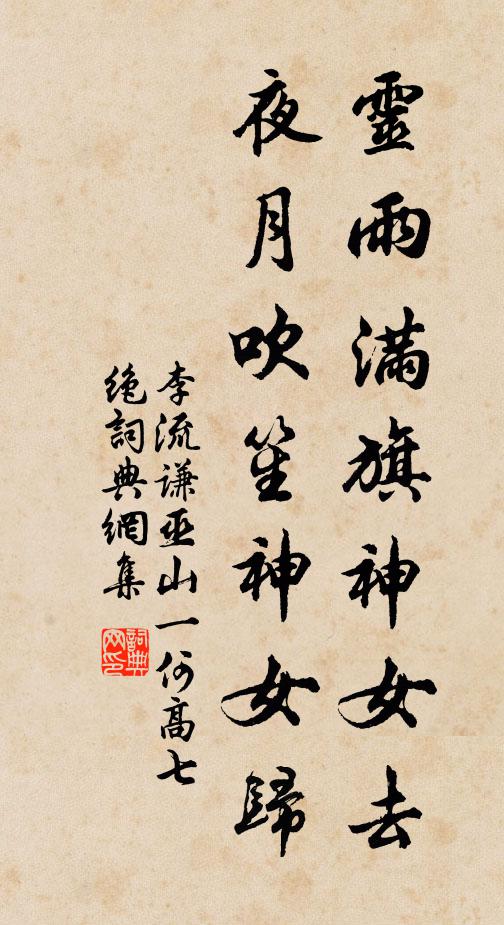 靈雨滿旗神女去
夜月吹笙神女歸
李流謙巫山一何高七
絶詞典網集
詞典网印